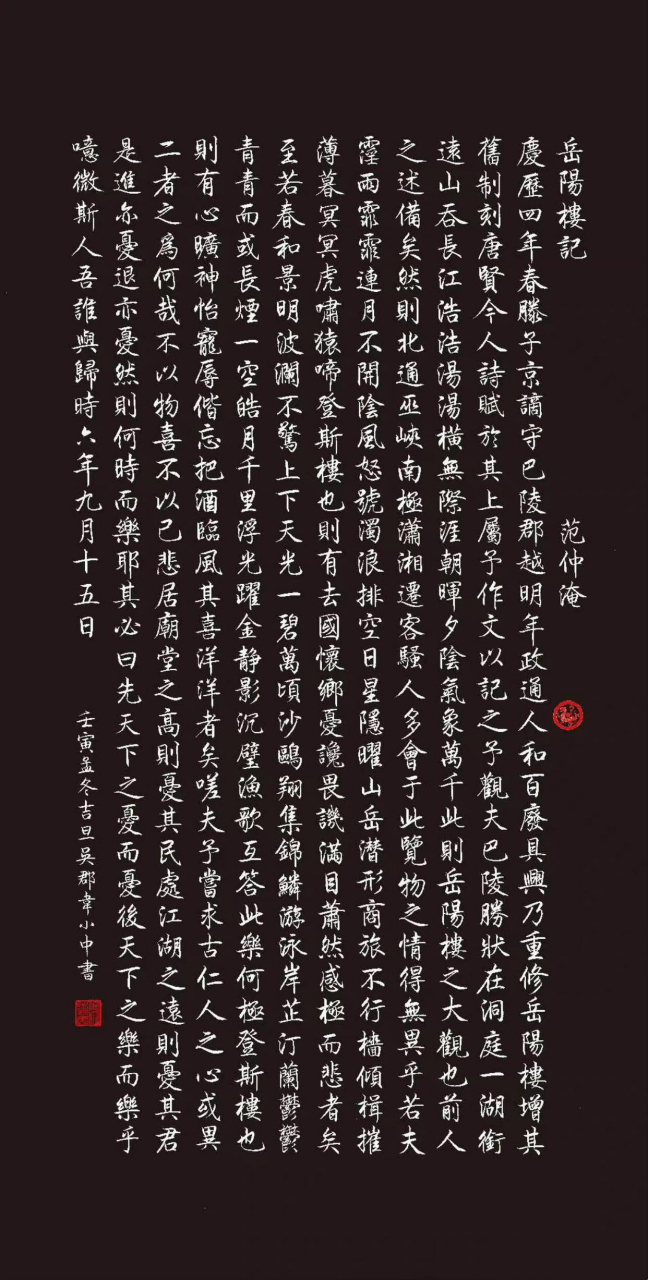 岳陽樓記
范仲淹
慶歷四年春滕子京謫守巴陵郡越明年政通人和百廢具興乃重修岳陽樓增其
舊制刻唐賢今人詩賦於其上屬予作文以記之予觀夫巴陵勝狀在洞庭一湖銜
遠山吞長江浩浩湯湯橫無際涯朝暉夕陰氣象萬千此則岳陽樓之大觀也前人
之述備矣然則北通巫峽南極瀟湘遷客騷人多會于此覽物之情得無異乎若夫
霪雨霏霏連月不開陰風怒號濁浪排空日星隱曜山岳潜形商旅不行檣傾楫摧
薄暮冥冥虎嘯猿啼登斯樓也則有去國懷鄉憂讒畏譏滿目蕭然感極而悲者矣
至若春和景明波瀾不驚上下天光一碧萬頃沙鷗翔集錦鱗游泳岸芷汀蘭鬱鬱
青青而或長煙一空皓月千里浮光躍金静影沉璧漁歌互答此樂何極登斯樓也
則有心曠神怡寵辱偕忘把酒臨風其喜洋洋者矣嗟夫予當求古仁人之心或異
二者之為何哉不以物喜不以己悲居廟堂之高則憂其民處江湖之遠則憂其君
是進亦憂退亦憂然則何時而樂耶其必曰先天下之憂而憂後天下之樂而樂乎
噫微斯人吾誰與歸時六年九月十五日
壬寅孟冬吉旦吳郡韋小中書